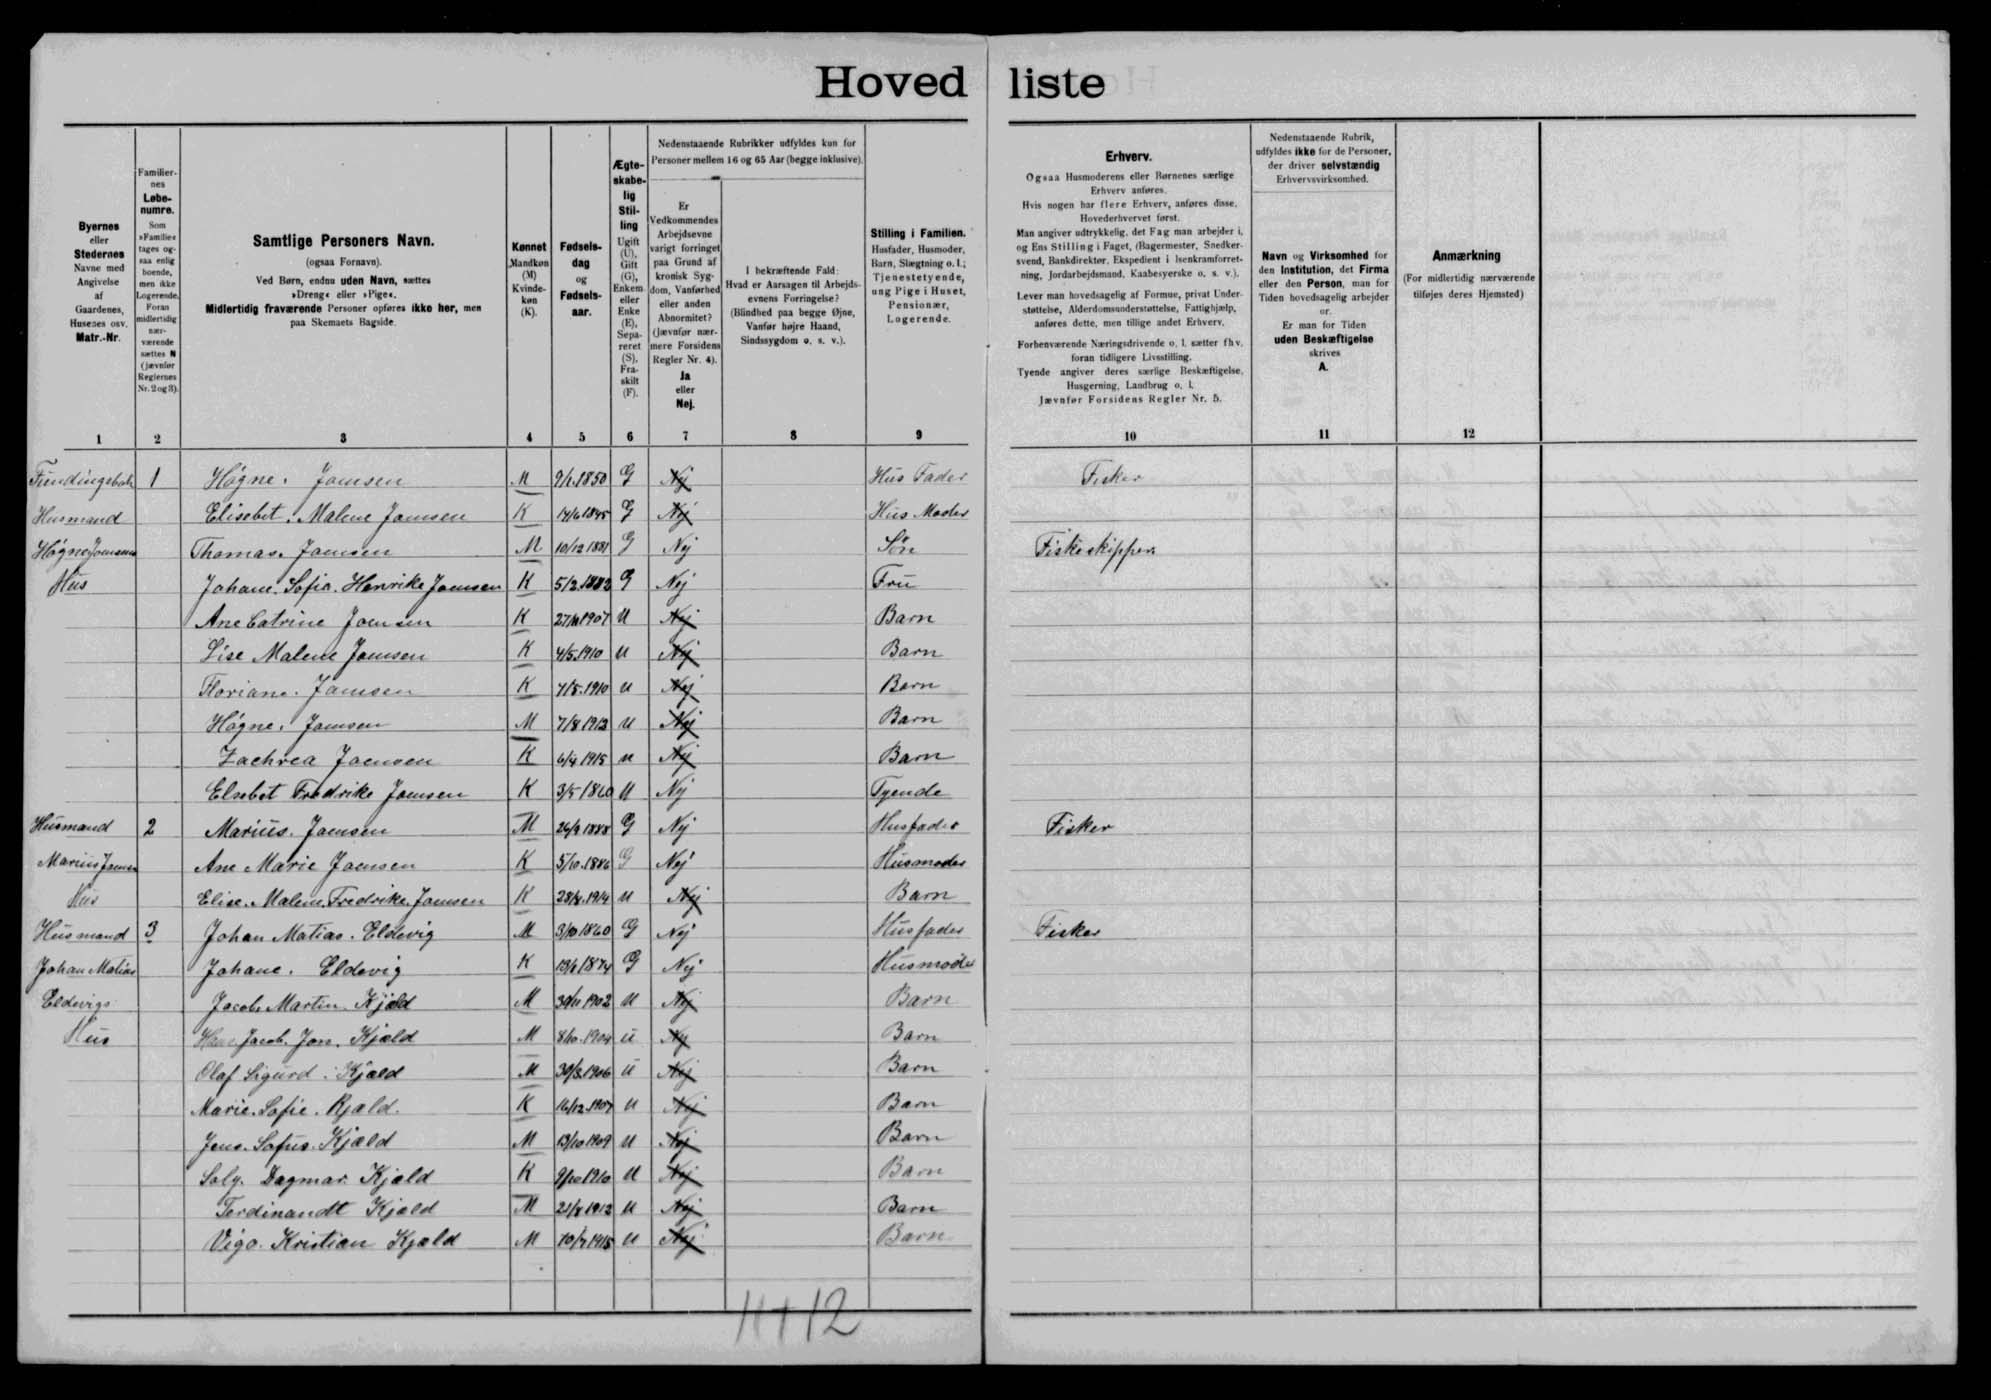 Hovedliste
Byernes
eller
Stedernes
Navne med
Angivelse
af
Gaardenes,
Husenes osv.
Matr.-Nr.
Familier-
nes
Løbe-
numre.
Som
»Familie«
tages og-
saa enlig
boende,
men ikke
Logerende.
Foran
midlertidig
nær-
værende
sættes N
(jævnfør
Reglernes
Nr. 2 og 3).
Samtlige Personers Navn.
(ogsaa Fornavn).
Ved Børn, endnu uden Navn, sættes
»Dreng« eller »Pige«.
Midlertidig fraværende Personer opføres ikke her, men
paa Skemaets Bagside.
Kønnet
Mandkøn
(M)
Kvinde-
køn
(K).
Fødsels-
dag
og
Fødsels-
aar.
Ægte-
skabe-
lig
Stil-
ling
Ugift
(U),
Gift
(G),
Enkem.
eller
Enke
(E),
Sepa-
reret
(S),
Fra-
skilt
(F).
Nedenstaaende Rubrikker udfyldes kun for
Personer mellem 16 og 65 Aar (begge inklusive).
Er
Vedkommendes
Arbejdsevne
varigt forringet
paa Grund af
kronisk Syg-
dom, Vanførhed
eller anden
Abnormitet?
(Jævnfør nær-
mere Forsidens
Regler Nr. 4).
Ja
eller
Nej.
I bekræftende Fald:
Hvad er Aarsagen til Arbejds-
evnens Forringelse?
(Blindhed paa begge Øjne,
Vanfør højre Haand,
Sindssygdom o. s. v.).
Stilling i Familien.
Husfader, Husmoder,
Barn, Slægtning o. l.;
Tjenestetyende,
ung Pige i Huset,
Pensionær,
Logerende.
Erhverv.
Ogsaa Husmoderens eller Børnenes særlige
Erhverv anføres.
Hvis nogen har flere Erhverv, anføres disse,
Hovederhvervet først.
Man angiver udtrykkelig, det Fag man arbejder i,
og Ens Stilling i Faget, (Bagermester, Snedker-
svend, Bankdirektør, Ekspedient i Isenkramforret-
ning, Jordarbejdsmand, Kaabesyerske o. s. v.).
Lever man hovedsagelig af Formue, privat Under-
støttelse, Alderdomsunderstøttelse, Fattighjælp,
anføres dette, men tillige andet Erhverv.
Forhenværende Næringsdrivende o. l. sætter fhv.
foran tidligere Livsstilling.
Tyende angiver deres særlige Beskæftigelse,
Husgerning, Landbrug o. l.
Jævnfør Forsidens Regler Nr. 5.
Nedenstaaende Rubrik,
udfyldes ikke for de Personer,
der driver selvstændig
Erhvervsvirksomhed.
Navn og Virksomhed for
den Institution, det Firma
eller den Person, man for
Tiden hovedsagelig arbejder
for.
Er man for Tiden
uden Beskæftigelse
skrives
A.
Anmærkning
(For midlertidig nærværende
tilføjes deres Hjemsted)
1 2 3 4 5 6 7 8 9 10 11 12
1 Høgne. Joensen M 9/1.1850 G Nej Hus Fader Fisker
Husmand Elisebet. Malene Joensen K 14/6 1845 G Nej Hus Moder
Høgne Joensens Thomas. Joensen M 10/12 1881 G Nej Søn Fiskeskipper
Hus Johane. Sofia. Henrike Joensen K 5/2.1882 G Nej Fru
Ane Catrine Joensen K 1907 U Nej Barn
Lise Malene Joensen K 4/5.1910 U Nej Barn
Floriane. Joensen K 4/5.1910 U Nej Barn
Høgne. Joensen M 7/8 1912 U Nej Barn
Zachrea Joensen K 6/4 1915 U Nej Barn
Elsebet Fredrike Joensen K 3/5 1860 U Nej Tyende
Husmand 2 Marius. Joensen M 26/9 1888 G Nej Husfader Fisker
Marius Joensen Ane Marie Joensen K 5/10.1886 G Nej Husmoder
Hus Elise. Malene. Fredrike. Joensen K 28/8.1914 U Nej Barn
Husmand 3 Johan Matias. Eldevig M 3/10 1860 G Nej Husfader Fisker
Johan Matias Johane. Eldevig K 13/6 1874 G Nej Husmoder
Eldevigs Jacob. Martin. Kjæld M 30/11 1902 U Nej Barn
Hus Hans Jacob. Jon. Kjæld M 8/10.1904 U Nej Barn
Olaf Sigurd. Kjæld M 30/3.1906 U Nej Barn
Marie. Sofie. Kjæld. K 16/12.1907 U Nej Barn
Jens. Sofus. Kjæld M 13/10 1909 U Nej Barn
Solg. Dagmar. Kjæld K 9/10 1910 U Nej Barn
Ferdinandt Kjæld M 21/8 1912 U Nej Barn
Vigo. Kristian Kjæld M 10/7 1915 U Nej Barn
11+12